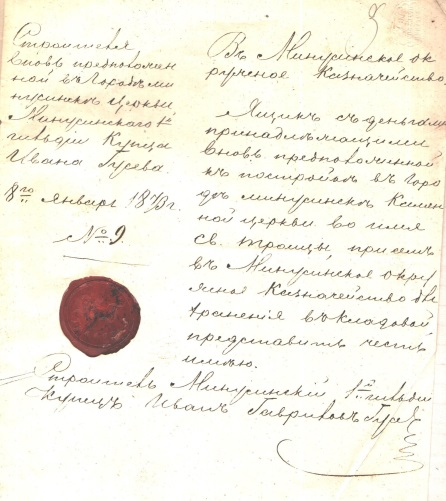 Строителя
вновь предположен
ной въ Городѣ Ми
нусинскѣ Церкви
Минусинскаго 1й
гильдіи Купца
Ивана Гусева.
8го Января 1879г.
№ 9.
Въ Минусинское ок
ружное Казначейство
Ящикъ съ деньгами
принадлежащими
вновь предположенной
къ постройкѣ въ Горо
дѣ Минусинскѣ Камен
ной церкви во имя
Св. Троицы, при семъ
въ Минусинское окру
жное Казначейство для
храненія въ кладовой
представить честь
имѣю.
Строитель Минусинскій 1й гильдіи
Купецъ Иванъ Гавриловъ Гусевъ